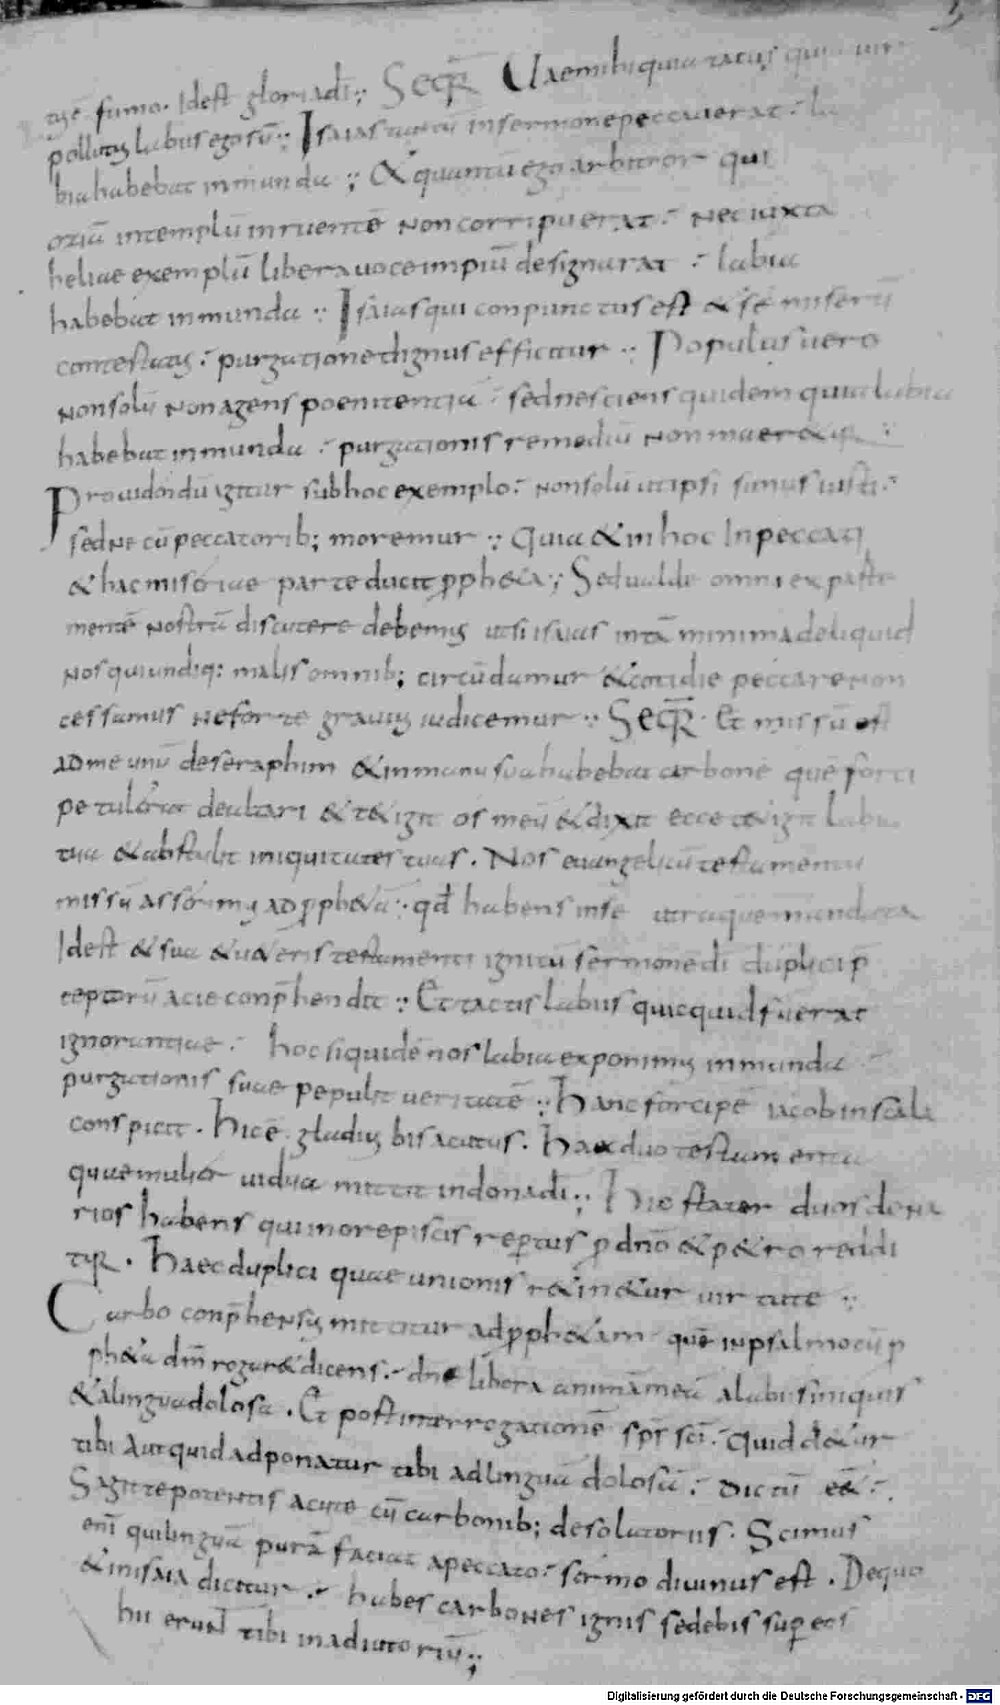 3
age fumo. Idest gloria dī; Seqr̄ Uae mihi quia tacui quia uir
pollutis labiis ego sū; Isaias tantū in sermone peccauerat: la
bia habebat inmunda; & quantū ego arbitror quia
oziā in templū inruentē non corripuerat: nec iuxta
heliae exemplū libera uoce impiū designarat: labia
habebat inmunda; Isaias qui conpunctus est & se miserū
contestatus: purgatione dignus efficitur; Populus uero
non solū non agens poenitentiā: sed nesciens quidem quia labia
habebat inmunda: purgationis remediū non mer&ur;
Prouidendū igitur sub hoc exemplo: non solū ut ipsi simus iusti:
sed ne cū peccatorib; moremur; Quia & in hoc In peccati
& hac miseriae parte ducit ꝓph&a; Sed ualde omni ex parte
mentē nostrā discutere debemus ut si isaias intā minima deliquid
nos qui undiq: malis omnib; circūdamur & cotidie peccare non
cessamus ne forte grauius iudicemur; Seqr̄. Et missū est
ad me unū de seraphim & in manu sua habebat carbonē quē forci
pe tulerat de altari & t&igit os meū & dixit ecce t&igit labia
tua & abstulit iniquitates tuas. Nos euangelicū testamentū
missū asserimus ad ꝓph&ā; qd̄ habens in se utraque mandata
Idest & sua & u&eris testamenti ignitū sermonē dī duplici p̄
ceptorū acie conp̄hendit; Et tactis labiis quicquid fuerat
ignorantiae: hoc siquidē nos labia exponimus inmunda
purgationis suae pepulit ueritate; Hanc forcipē iacob in scala
conspicit. Hic ē gladius bis acutus. Haec duo testamenta
quae mulier uidua mittit in dona dī; Hic stater duos dena
rios habens qui in ore piscis repertus p dn̄o & p&ro reddi
tur. Haec duplici quae unionis r&in&ur uirtute;
Carbo conp̄hensus mittitur ad ꝓph&am quē in psalmo cū ꝓ
ph&a dm̄ rogar& dicens: dne libera animā meā a labiis iniquis
& a lingua dolosa. Et post interrogationē sp̄s sc̄i: Quid d&ur
tibi aut quid adponatur tibi ad linguā dolosā: Dictū ē&:
Sagitte potentis acute cū carbonib; desolatoriis. Scimus
enī qui linguā purā faciat a peccato: sermo diuinus est. De quo
& in isaia dicitur: habes carbones ignis sedebis super eos
hii erunt tibi in adiutoriū;
Digitalisierung gefördert durch die Deutsche Forschungsgemeinschaft - DFG